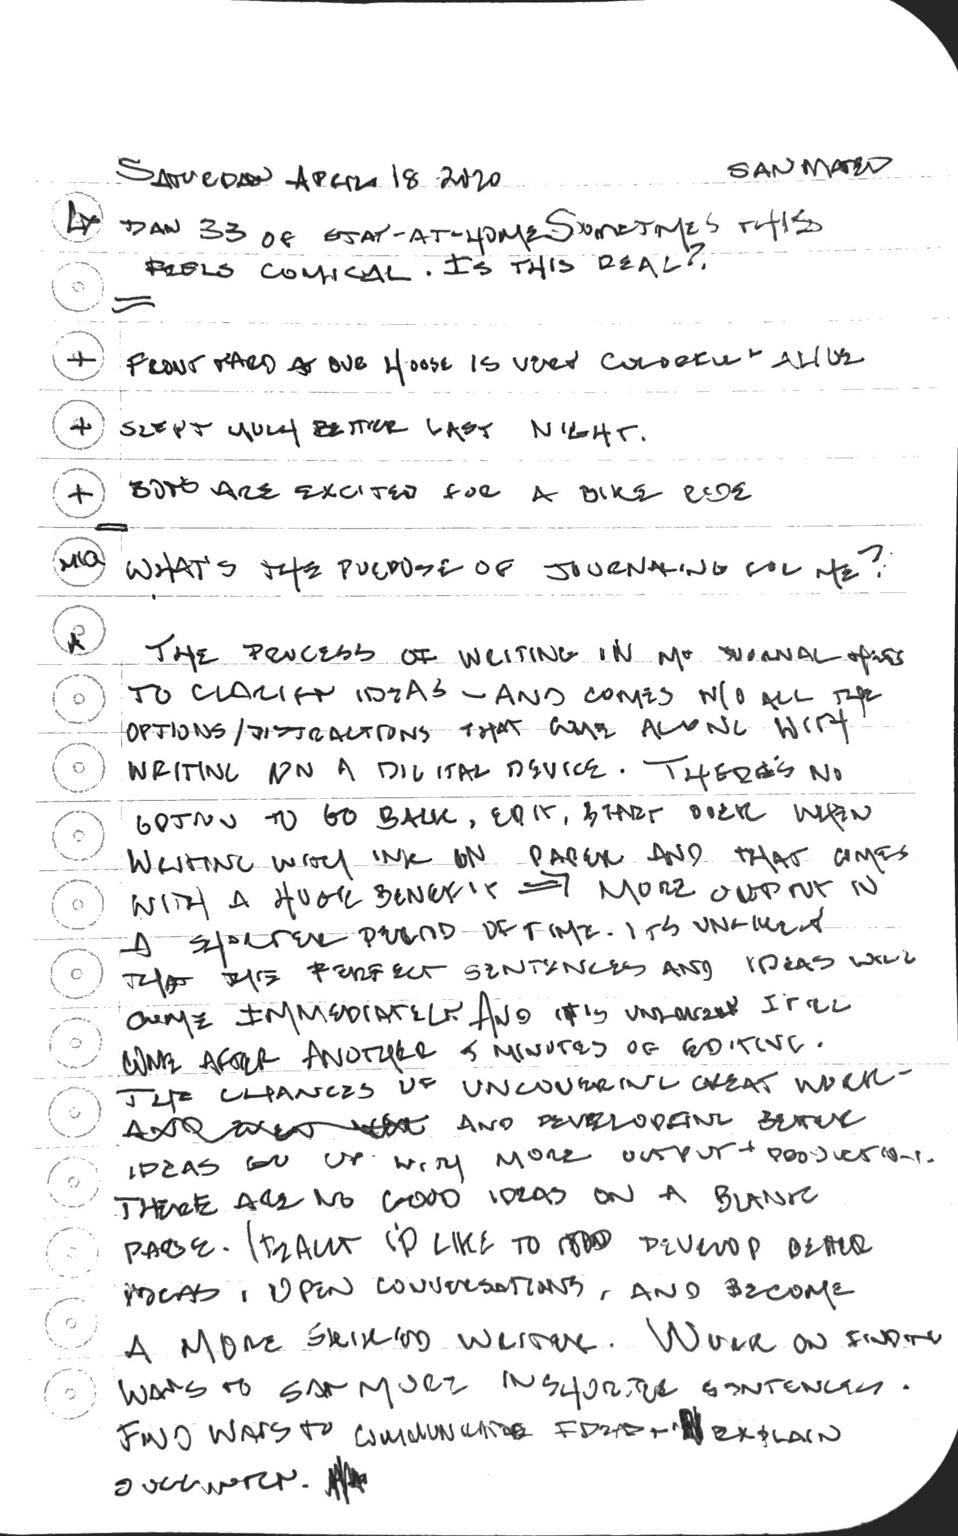 SATURDAY APRIL 18 2020 SAN MATEO
DAY 33 OF STAY-AT-HOME SOMETIMES THIS
FEELS COMICAL. IS THIS REAL?
+ FRONT YARD OUR HOUSE IS VERY COLORFUL + ALIVE
+ SLEPT MUCH BETTER LAST NIGHT.
+ BOYS ARE EXCITED FOR A BIKE RIDE
WHAT'S THE PURPOSE OF JOURNALING FOR ME?
A THE PROCESS OF WRITING IN MY JOURNAL
TO CLARIFY IDEAS - AND COMES W/O ALL THE
OPTIONS/DISTRACTIONS THAT COME ALONG WITH
WRITING ON A DIGITAL DEVICE. THERE'S NO
OPTION TO GO BACK, EDIT, START OVER WHEN
WRITING WITH INK ON PAPER AND THAT COMES
WITH A HUGE BENEFIT ⇒ MORE OUTPUT IN
A SHORTER PERIOD OF TIME. ITS UNLIKELY
THAT THE PERFECT SENTENCES AND IDEAS WILL
COME IMMEDIATELY. AND IT'S UNLIKELY IT'LL
COME AFTER ANOTHER 5 MINUTES OF EDITING.
THE CHANCES OF UNCOVERING GREAT WORK-
AND DEVELOPING BETTER
IDEAS GO UP WITH MORE OUTPUT + PRODUCTION.
THERE ARE NO GOOD IDEAS ON A BLANK
PAGE. I'D LIKE TO DEVELOP BETTER
IDEAS, OPEN CONVERSATIONS, AND BECOME
A MORE SKILLED WRITER. WORK ON FINDING
WAYS TO SAY MORE IN SHORTER SENTENCES.
FIND WAYS TO COMMUNICATE IDEAS + EXPLAIN